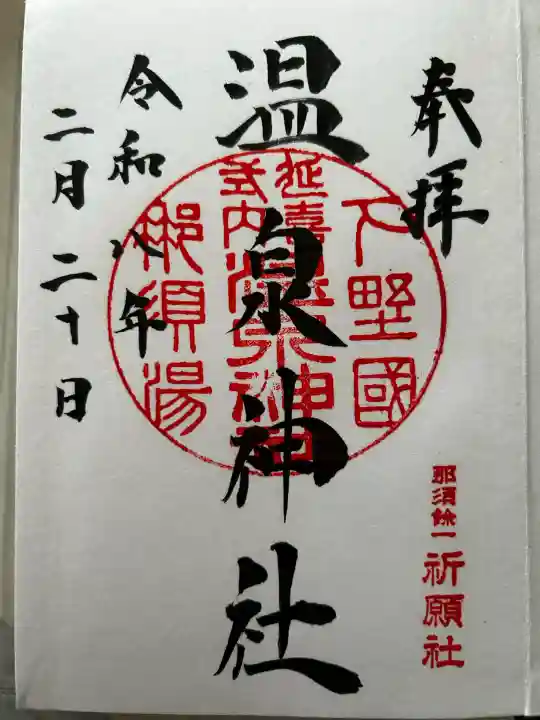 奉拝
下野國
延喜式内
温泉神社
那須湯
温泉神社
令和八年
二月二十日
那須餘一
祈願社